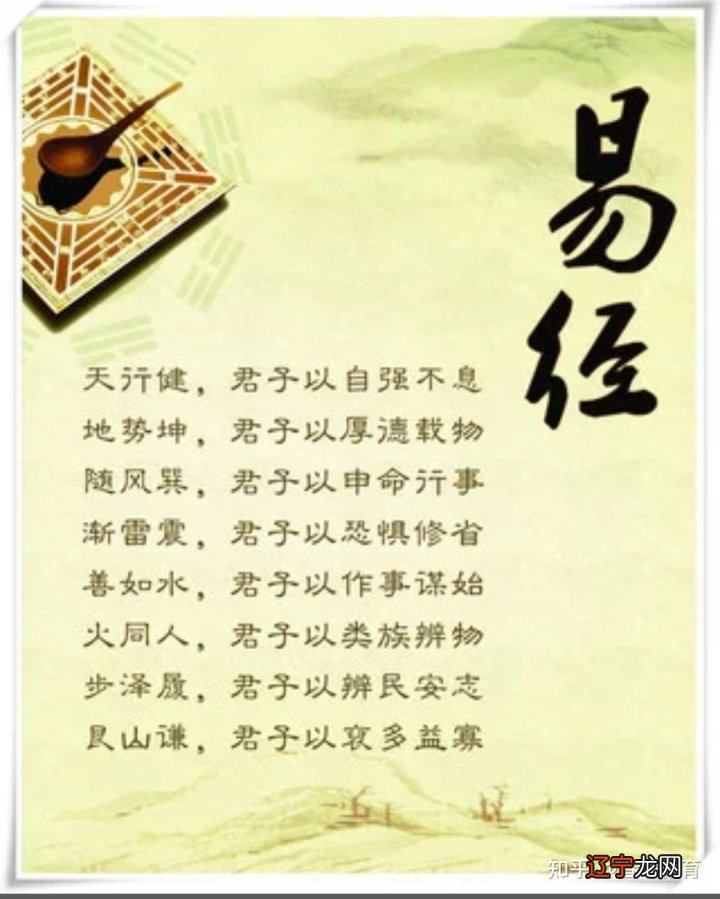 易经
天行健，君子以自强不息
地势坤，君子以厚德载物
随风巽，君子以申命行事
渐雷震，君子以恐惧修省
善如水，君子以作事谋始
火同人，君子以类族辨物
步泽履，君子以辨民安志
艮山谦，君子以裒多益寡
知乎
辽宁龙网
育